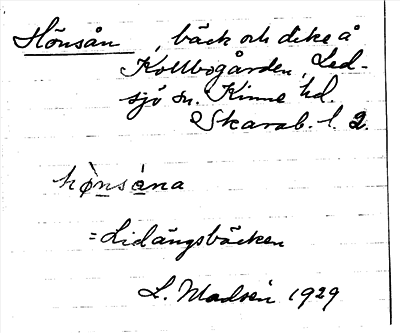 Hönsån, bäck och dike å
Kollbogården, Led-
sjö sn. Kinne hd.
Skarab. l. 2.
hø̀nsåna
=Lidängsbäcken
L. Madsén 1929